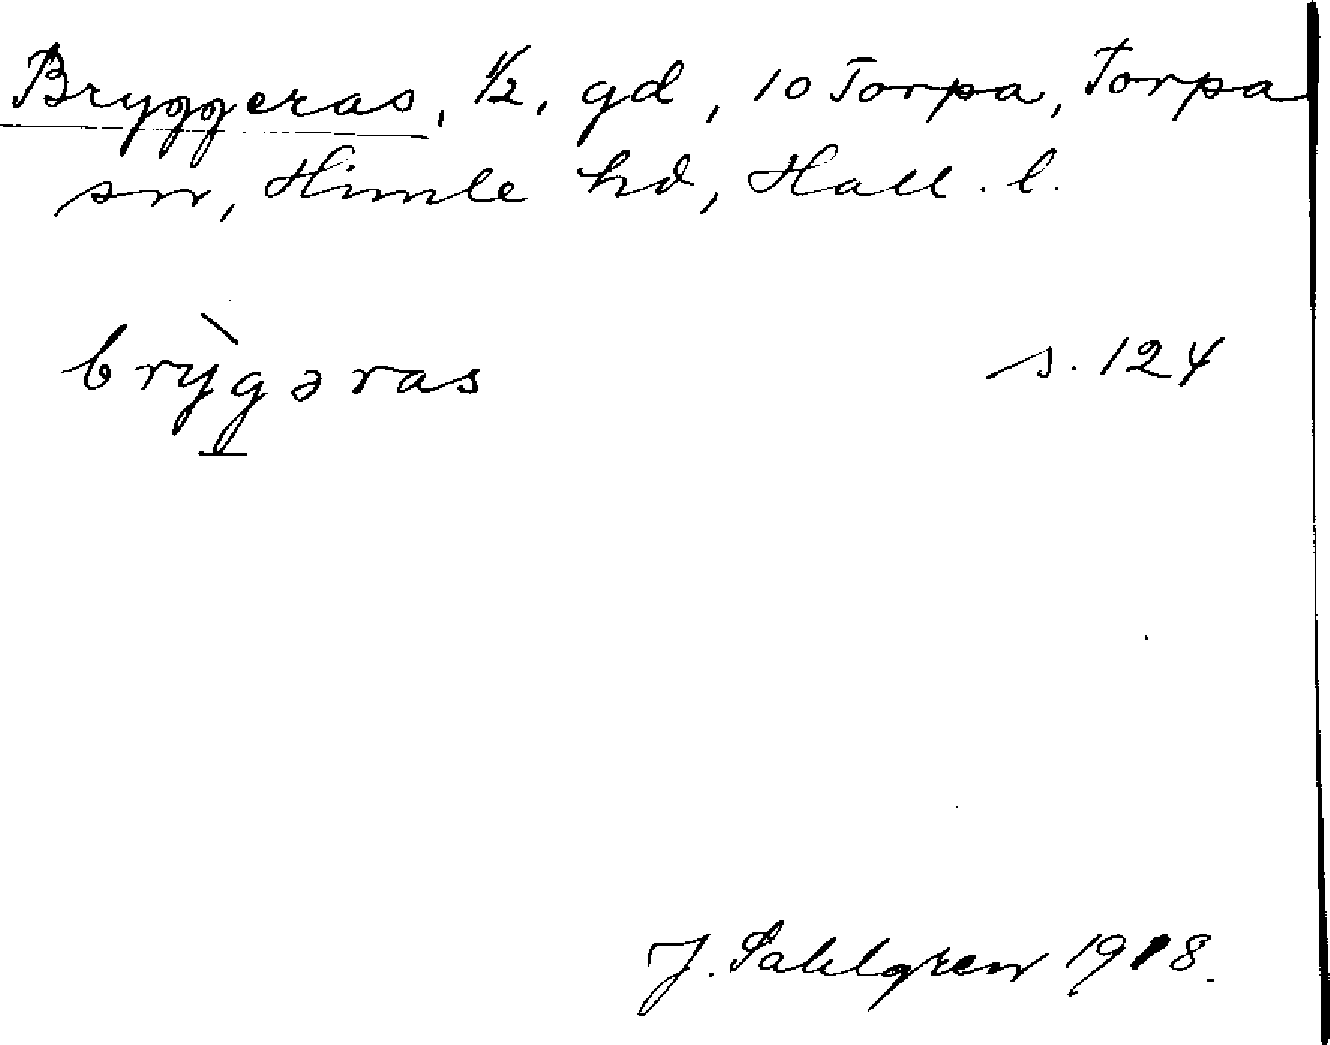 Bryggeras, 1/2, gd, 10 Torpa, Torpa
sn, Himle hd, Hall. l.
brỳgəras s. 124
J. Sahlgren 1918.